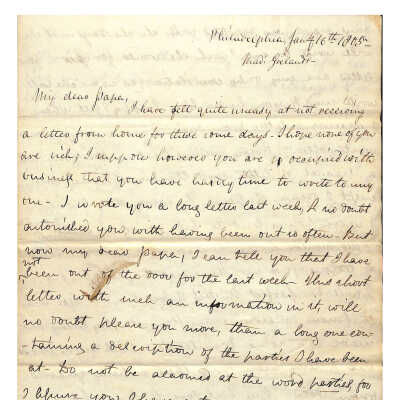 Philadelphia, Jany 16th 1805
Mad. Grelaud's
My dear Papa,
I have felt quite uneasy at not receiving
a letter from home for these some days. I hope none of you
are sick; I suppose however you are so occupied with
business that you have hardly time to write to any
one - I wrote you a long letter last week, & no doubt
astonished you, with having been out so often. But
now my dear Papa, I can tell you that I have
not been out of the door for the last week - This short
letter, with such an information in it, will
no doubt please you more, than a long one con-
-taining a description of the parties I have been
at - Do not be alarmed at the word parties, for
I assure you I have